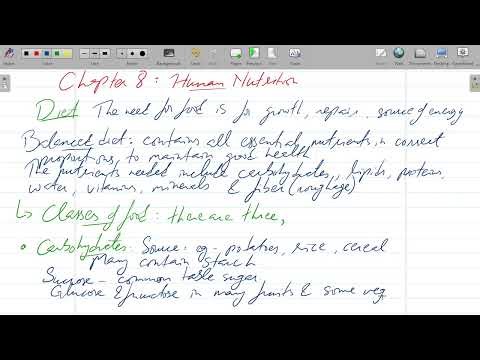 Chapter 8 : Human Nutrition
Diet The need for food is for growth, repair, source of energy
Balanced diet : contains all essential nutrients, in correct
proportions, to maintain good health
The nutrients needed include carbohydrates, lipids, proteins,
water, vitamins, minerals & fiber (roughage)
↳ Classes of food : there are three,
• Carbohydrates: Source: eg - potatoes, rice, cereal
Many contain starch
Sucrose - common table sugar
Glucose & fructose in many fruits & some veg